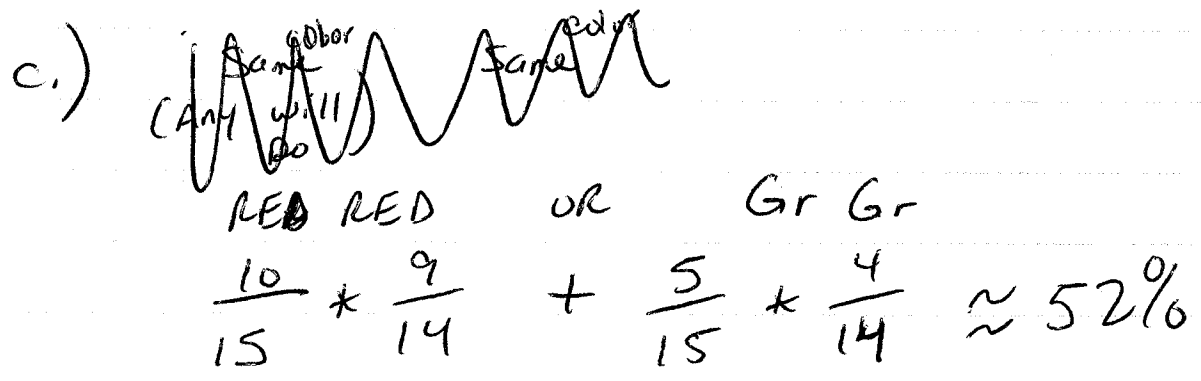 c.) Same color Same color
(Any will
Do)
RED RED OR Gr Gr
10/15 * 9/14 + 5/15 * 4/14 ≈ 52%